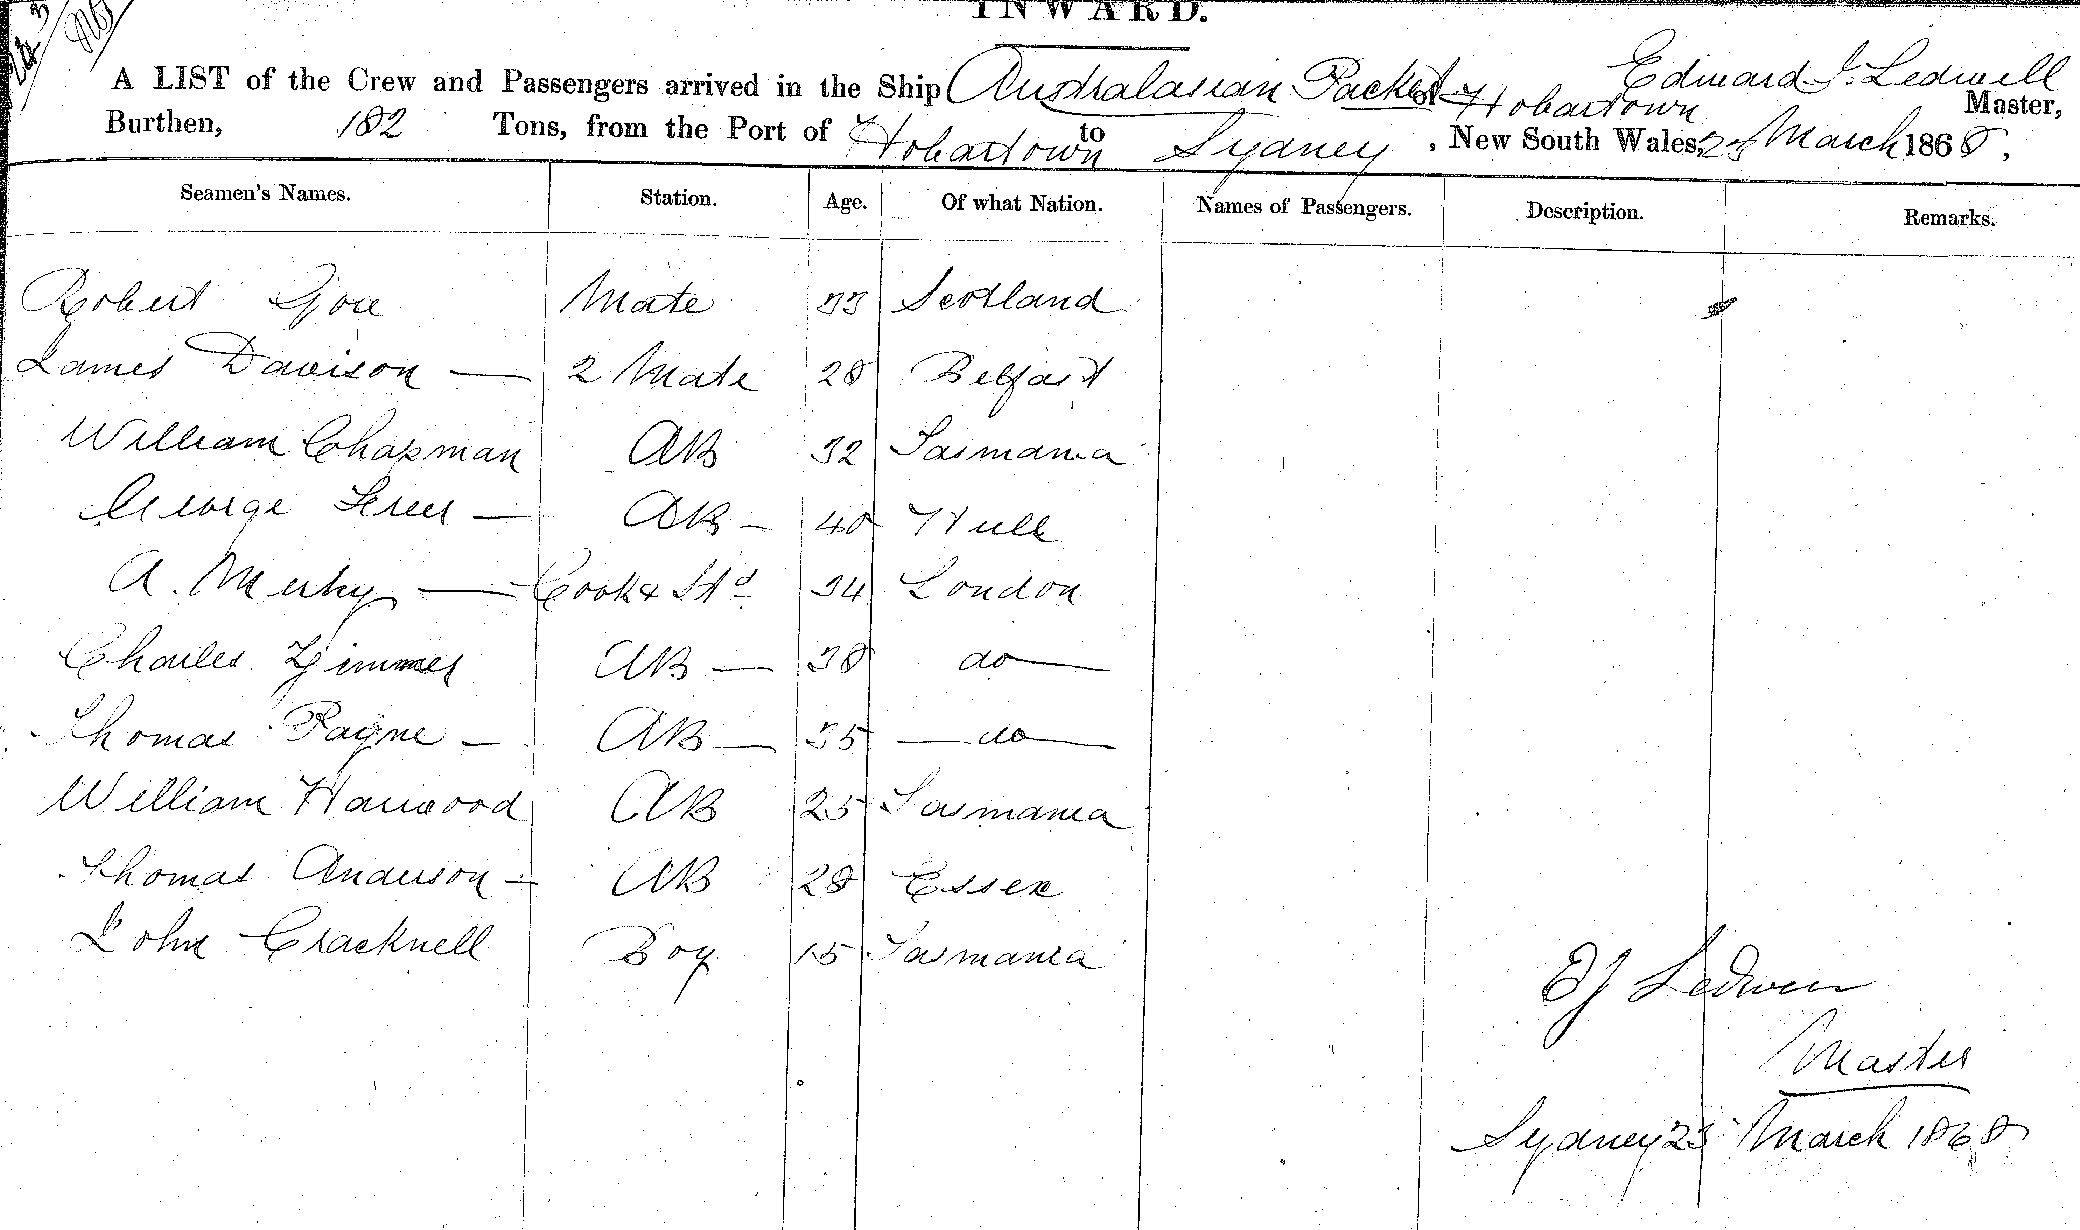 INWARD.
A LIST of the Crew and Passengers arrived in the Ship Australasian Packet of Hobartown Edward J. Ledwell Master,
Burthen, 182 Tons, from the Port of Hobartown to Sydney, New South Wales, 23 March 1868.
Seamen's Names. Station. Age. Of what Nation. Names of Passengers. Description. Remarks.
Robert Mate 33 Scotland
James Davison — 2 Mate 28 Belfast
William Chapman AB 32 Tasmania
George — AB — 40 Hull
A. — Cook & Std 34 London
Charles AB — 38 do —
Thomas Payne — AB — 35 — do —
William Harwood AB 25 Tasmania
Thomas Anderson — AB 28 Essex
John Cracknell Boy 15 Tasmania
EJ Ledwell
Master
Sydney 23 March 1868